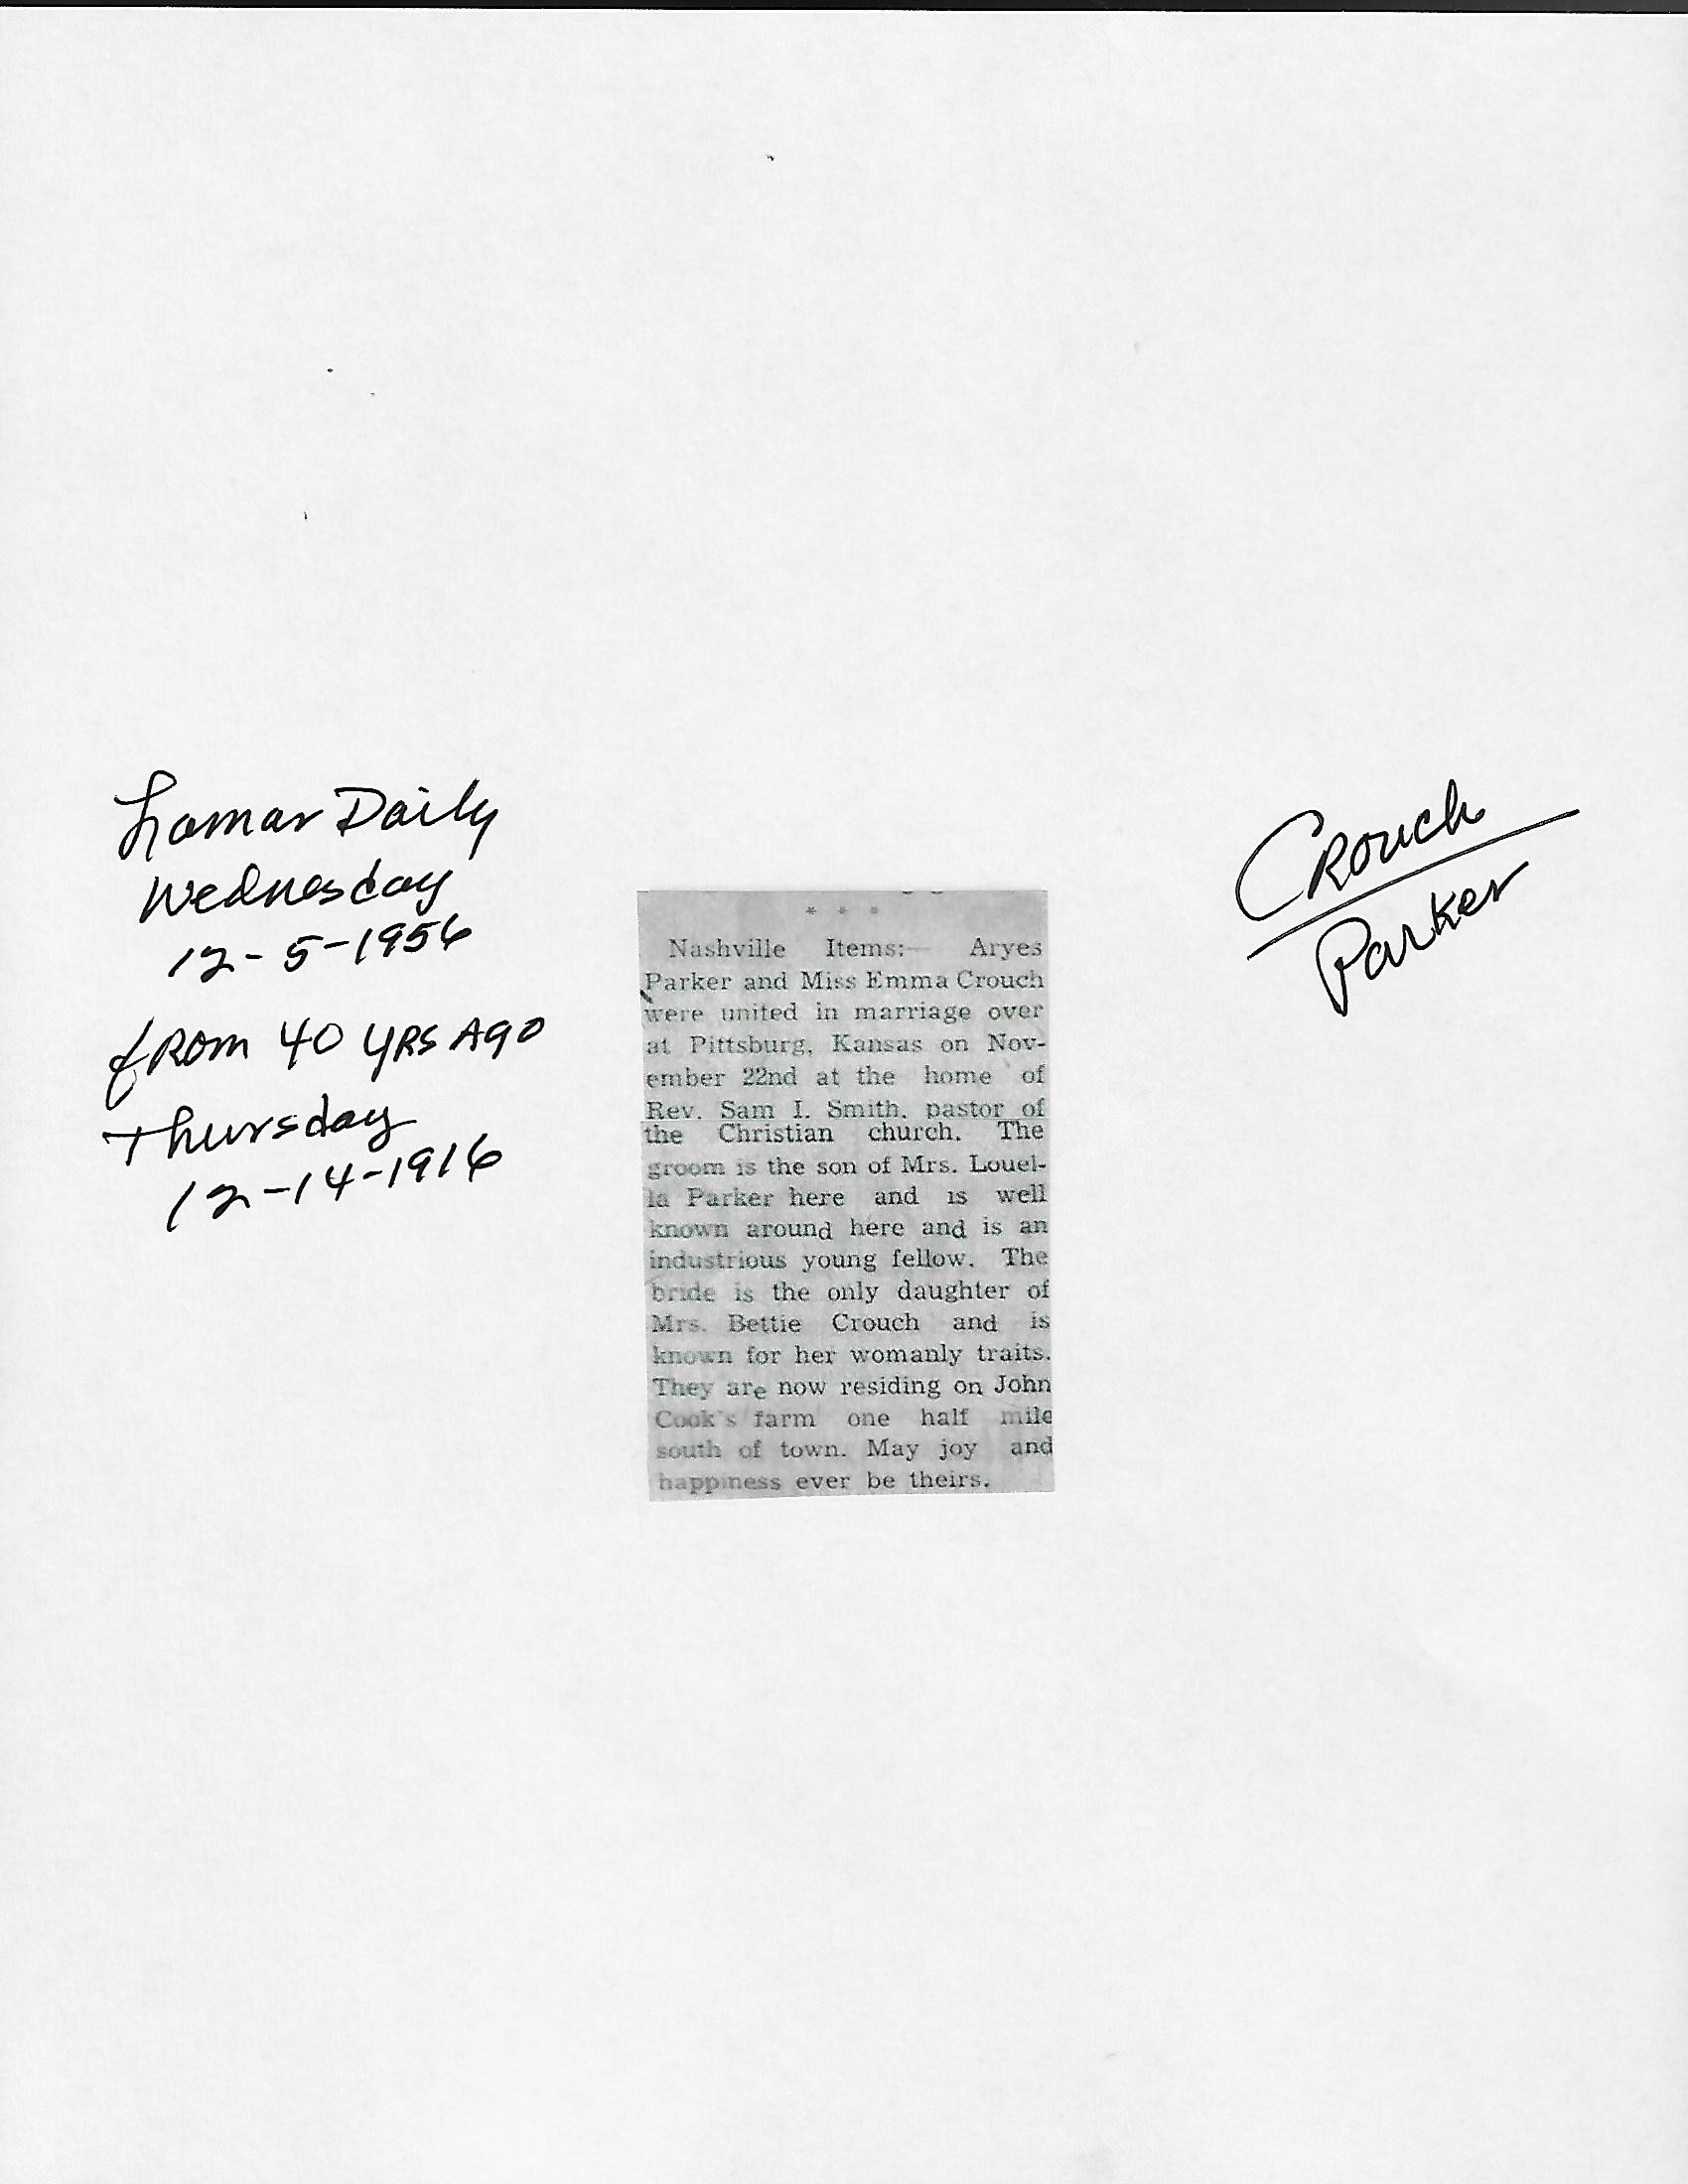 Lamar Daily
Wednesday
12-5-1956
from 40 YRS Ago
Thursday
12-14-1916
Crouch
Parker
* * *
Nashville Items:— Aryes
Parker and Miss Emma Crouch
were united in marriage over
at Pittsburg, Kansas on Nov-
ember 22nd at the home of
Rev. Sam I. Smith, pastor of
the Christian church. The
groom is the son of Mrs. Louel-
la Parker here and is well
known around here and is an
industrious young fellow. The
bride is the only daughter of
Mrs. Bettie Crouch and is
known for her womanly traits.
They are now residing on John
Cook's farm one half mile
south of town. May joy and
happiness ever be theirs.